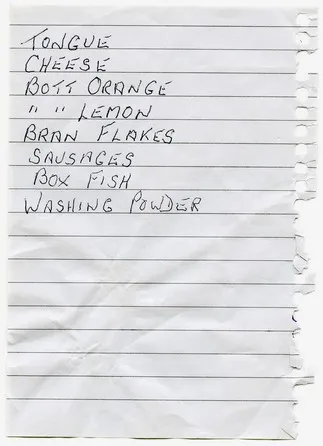 TONGUE
CHEESE
BOTT ORANGE
" " LEMON
BRAN FLAKES
SAUSAGES
BOX FISH
WASHING POWDER